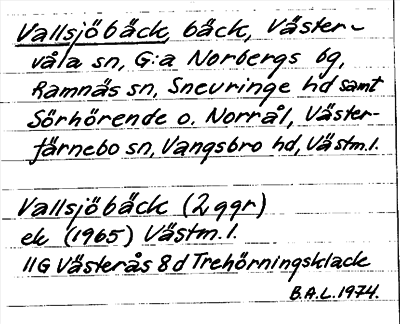 Vallsjöbäck, bäck, Väster-
våla sn, G:a Norbergs bg,
Ramnäs sn, Snevringe hd samt
Sörhörende o. Norrål, Väster-
färnebo sn, Vangsbro hd, Västm.l.
Vallsjöbäck (2 ggr)
ek (1965) Västm.l.
11G Västerås 8d Trehörningsklack
B.A.L. 1974.